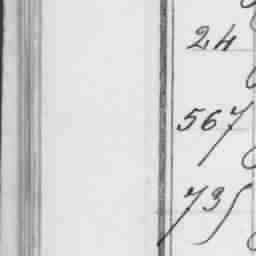 24
567
735